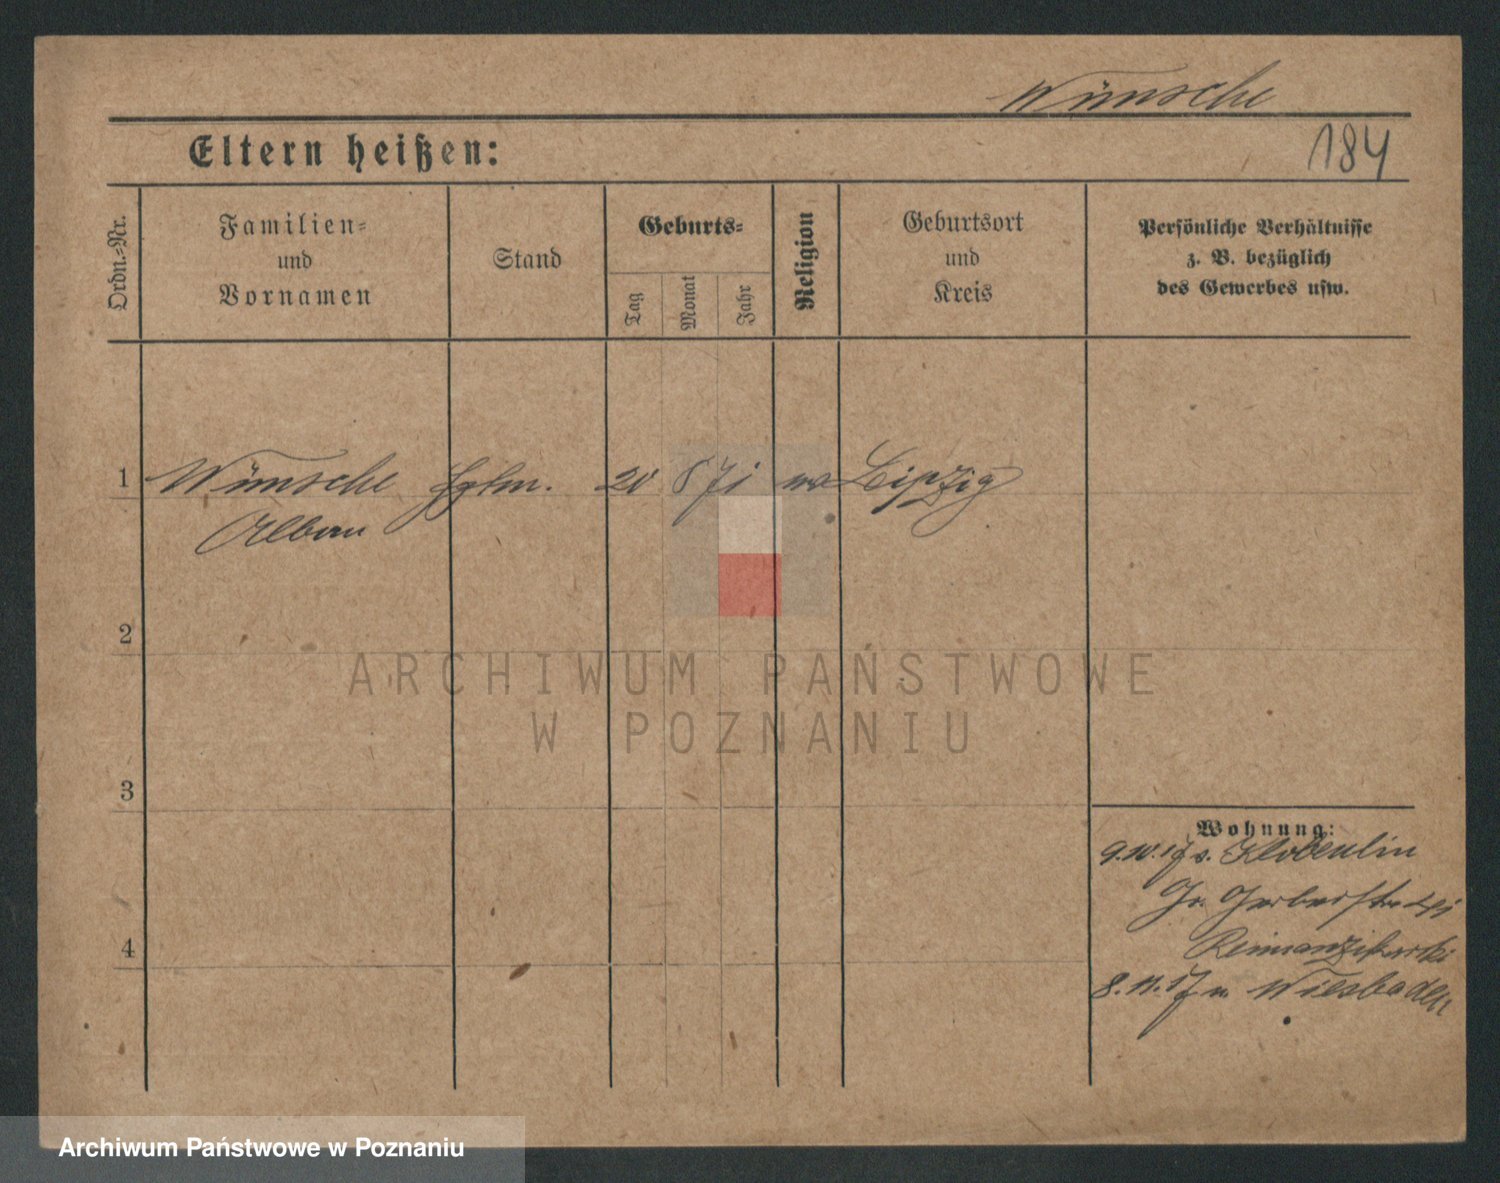 Wünsche
184
Eltern heißen:
Ordn.-Nr.
Familien-
und
Vornamen
Stand
Geburts-
Tag
Monat
Jahr
Religion
Geburtsort
und
Kreis
Persönliche Verhältnisse
z. B. bezüglich
des Gewerbes usw.
1 Wünsche 20 8 71 Leipzig
Alban
2
3
4
Wohnung:
9.10.17 v.
Gr. Gerberstr.
8.11.17 n. Wiesbaden
ARCHIWUM PAŃSTWOWE
W POZNANIU
Archiwum Państwowe w Poznaniu